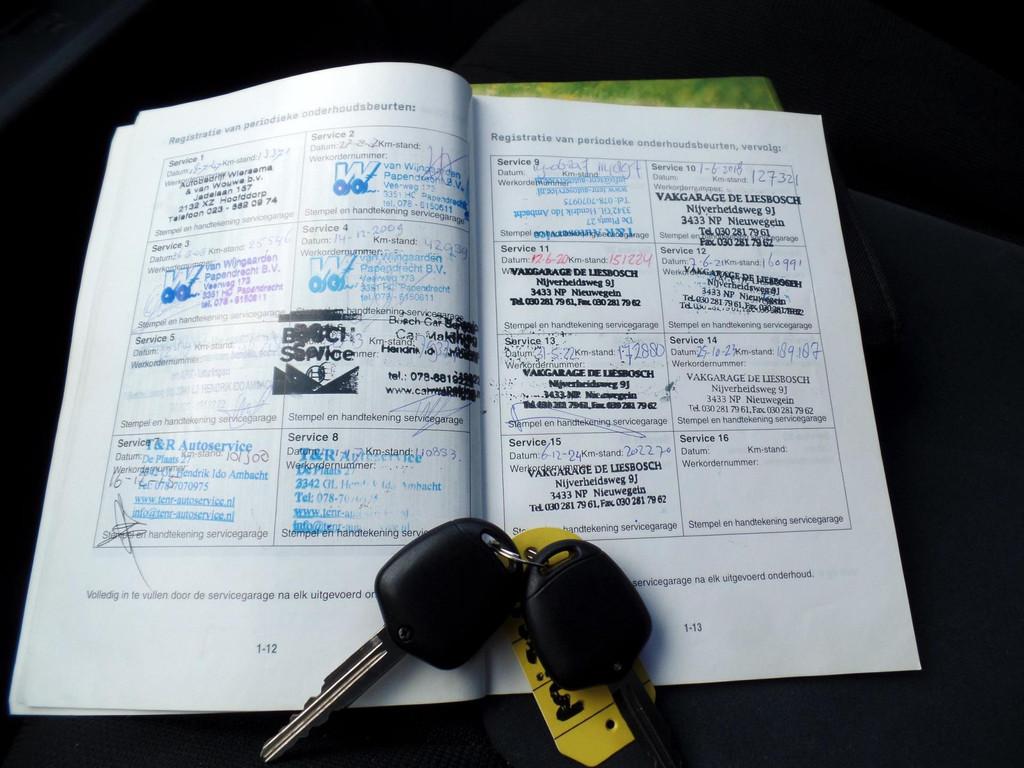 Registratie van periodieke onderhoudsbeurten:
Service 1
Datum: Km-stand:
Autobedrijf Wiersema
& van Wouwe b.v.
Jadelaan 157
2132 XZ Hoofddorp
Telefoon 023 - 562 09 74
Stempel en handtekening servicegarage
Service 2
Datum: Km-stand:
Werkordernummer:
van Wijngaarden
Papendrecht B.V.
Veerweg 173
3351 HC Papendrecht
tel. 078 - 6150611
Stempel en handtekening servicegarage
Service 3
Km-stand: 25546
Werkordernummer:
van Wijngaarden
Papendrecht B.V.
Veerweg 173
3351 HC Papendrecht
tel. 078 - 6150611
Stempel en handtekening servicegarage
Service 4
Datum: 14-12-2009 Km-stand: 42939
Werkordernummer:
van Wijngaarden
Papendrecht B.V.
Veerweg 173
3351 HC Papendrecht
tel. 078 - 6150611
Stempel en handtekening servicegarage
Service 5
Datum: Km-stand:
Werkordernummer:
Stempel en handtekening servicegarage
Bosch
Service
Bosch Car
Hendrik Ido
tel.: 078-681
www.carmak
Stempel en handtekening servicegarage
Service 7
T&R Autoservice
De Plaats 27
Km-stand: 101500
3342 GL Hendrik Ido Ambacht
Tel: 078-7070975
www.tenr-autoservice.nl
info@tenr-autoservice.nl
Stempel en handtekening servicegarage
Service 8
Datum: Km-stand: 110833
T&R Autoservice
De Plaats 27
Werkordernummer:
3342 GL Hendrik Ido Ambacht
Tel: 078-70
www.tenr-
info@tenr-
Stempel en handtekening servicegarage
Volledig in te vullen door de servicegarage na elk uitgevoerd
1-12
Registratie van periodieke onderhoudsbeurten, vervolg:
Service 9
Datum: Km-stand:
Werkordernummer:
Tel: 078-7070975
3342 GL Hendrik Ido Ambacht
De Plaats 27
T&R Autoservice
Service 10 1-6-2018
Datum: Km-stand: 127321
Werkordernummer:
VAKGARAGE DE LIESBOSCH
Nijverheidsweg 9J
3433 NP Nieuwegein
Tel. 030 281 79 61
Fax. 030 281 79 62
Service 11
Datum: 12-6-20 Km-stand: 151224
VAKGARAGE DE LIESBOSCH
Nijverheidsweg 9J
3433 NP Nieuwegein
Tel. 030 281 79 61, Fax. 030 281 79 62
Stempel en handtekening servicegarage
Service 12
Datum: 2-6-21 Km-stand: 160991
VAKGARAGE DE LIESBOSCH
Nijverheidsweg 9J
3433 NP Nieuwegein
Stempel en handtekening servicegarage
Service 13
Datum: 31-5-22 Km-stand: 172880
Werkordernummer:
VAKGARAGE DE LIESBOSCH
Nijverheidsweg 9J
3433 NP Nieuwegein
Tel. 030 281 79 61, Fax. 030 281 79 62
Stempel en handtekening servicegarage
Service 14
Datum: 25-10-23 Km-stand: 189187
Werkordernummer:
VAKGARAGE DE LIESBOSCH
Nijverheidsweg 9J
3433 NP Nieuwegein
Tel. 030 281 79 61, Fax. 030 281 79 62
Stempel en handtekening servicegarage
Service 15
Datum: 6-12-24 Km-stand: 202270
Werkordernummer:
VAKGARAGE DE LIESBOSCH
Nijverheidsweg 9J
3433 NP Nieuwegein
Tel. 030 281 79 61, Fax. 030 281 79 62
Stempel en handtekening servicegarage
Service 16
Datum: Km-stand:
Werkordernummer:
Stempel en handtekening servicegarage
servicegarage na elk uitgevoerd onderhoud.
1-13